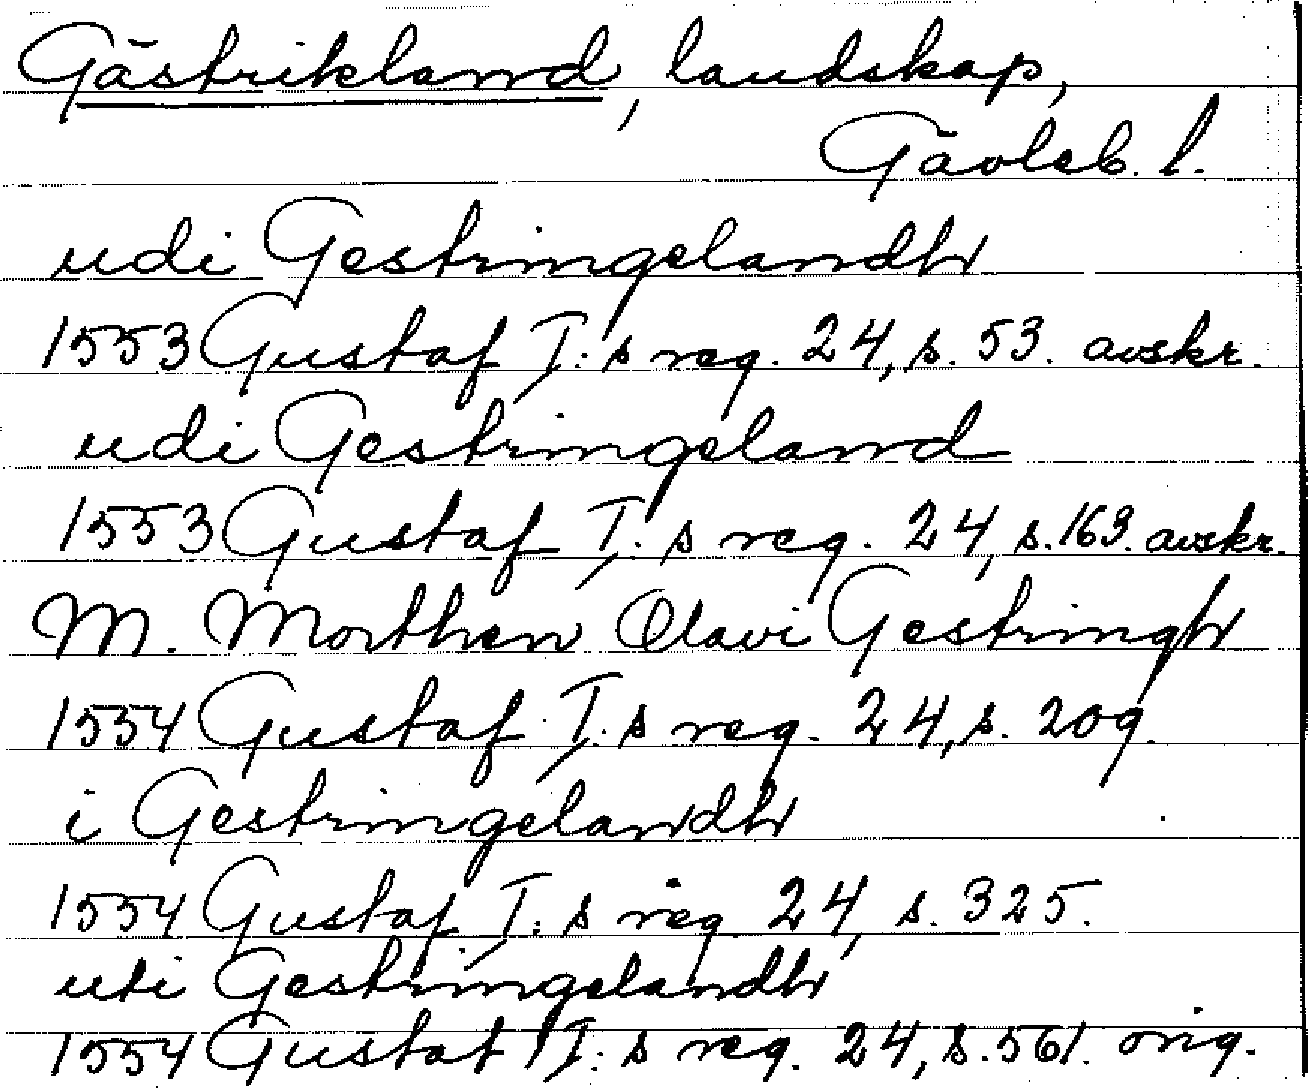 Gästrikland, landskap,
Gävleb. l.
udi Gestringelandh
1553 Gustaf I:s reg. 24, s. 53. avskr.
udi Gestringeland
1553 Gustaf I:s reg. 24, s. 163. avskr.
M. Morthen Olavi Gestringh
1554 Gustaf I:s reg. 24, s. 209.
i Gestringelandh
1554 Gustaf I:s reg. 24, s. 325.
uti Gestringelandh
1554 Gustaf I:s reg. 24, s. 561. orig.